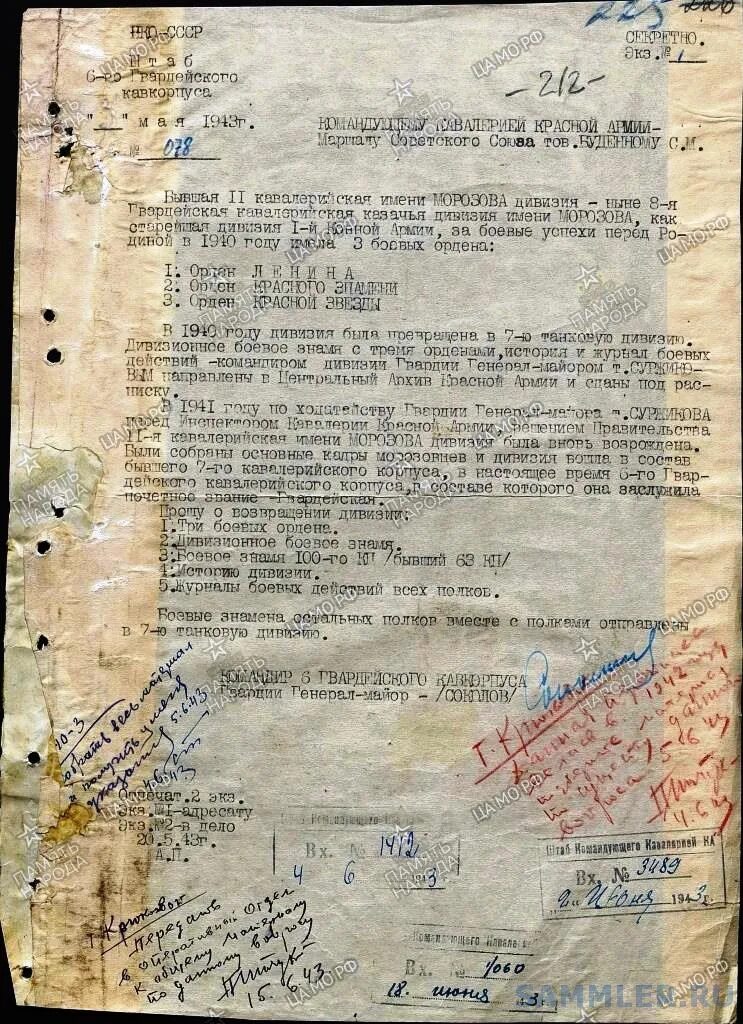 225
НКО-СССР
Штаб
6-го Гвардейского
кавкорпуса
"__" мая 1943г.
№ 078
СЕКРЕТНО.
Экз.№ 1
-212-
КОМАНДУЮЩЕМУ КАВАЛЕРИЕЙ КРАСНОЙ АРМИИ-
Маршалу Советского Союза тов.БУДЕННОМУ С.М.
Бывшая II кавалерийская имени МОРОЗОВА дивизия - ныне 8-я
Гвардейская кавалерийская казачья дивизия имени МОРОЗОВА, как
старейшая дивизия I-й Конной Армии, за боевые успехи перед Ро-
диной в 1940 году имела 3 боевых ордена:
I. Орден ЛЕНИНА
2. Орден КРАСНОГО ЗНАМЕНИ
3. Орден КРАСНОЙ ЗВЕЗДЫ
В 1940 году дивизия была превращена в 7-ю танковую дивизию.
Дивизионное боевое знамя с тремя орденами,история и журнал боевых
действий -командиром дивизии Гвардии Генерал-майором т.СУРЖИКО-
ВЫМ направлены в Центральный Архив Красной Армии и сданы под рас-
писку.
В 1941 году по ходатайству Гвардии Генерал-майора т.СУРЖИКОВА
перед Инспектором Кавалерии Красной Армии, решением Правительства
II-я кавалерийская имени МОРОЗОВА дивизия была вновь возрождена.
Были собраны основные кадры морозовцев и дивизия вошла в состав
бывшего 7-го кавалерийского корпуса, в настоящее время 6-го Гвар-
дейского кавалерийского корпуса,в составе которого она заслужила
почетное звание -Гвардейская.
Прошу о возвращении дивизии:
1.Три боевых ордена.
2.Дивизионное боевое знамя.
3.Боевое знамя 100-го КП /бывший 63 КП/
4.Историю дивизии.
5.Журналы боевых действий всех полков.
Боевые знамена остальных полков вместе с полками отправлены
в 7-ю танковую дивизию.
КОМАНДИР 6 ГВАРДЕЙСКОГО КАВКОРПУСА
Гвардии Генерал-майор - /СОКОЛОВ/
10-3
Собрать весь материал
и получить у меня
указания 5.6.43
4.6.43
т. Крюкова
1942 году
5.6.43
4.6.43
Отпечат.2 экз.
Экз.№1-адресату
Экз.№2-в дело
20.5.43г.
А.П.
Вх. № 1412
4 6 1943
Штаб Командующего Кавалерией КА
Вх. № 3489
2 " Июня 1943г.
т. Крюкову
Передать
в Оперативный Отдел
к общему материалу
по данному вопросу
15.6.43
Командующего Кавалер
Вх. № 1060
18. июня 43г.
ПАМЯТЬ НАРОДА
ЦАМО.РФ
SAMMLER.RU